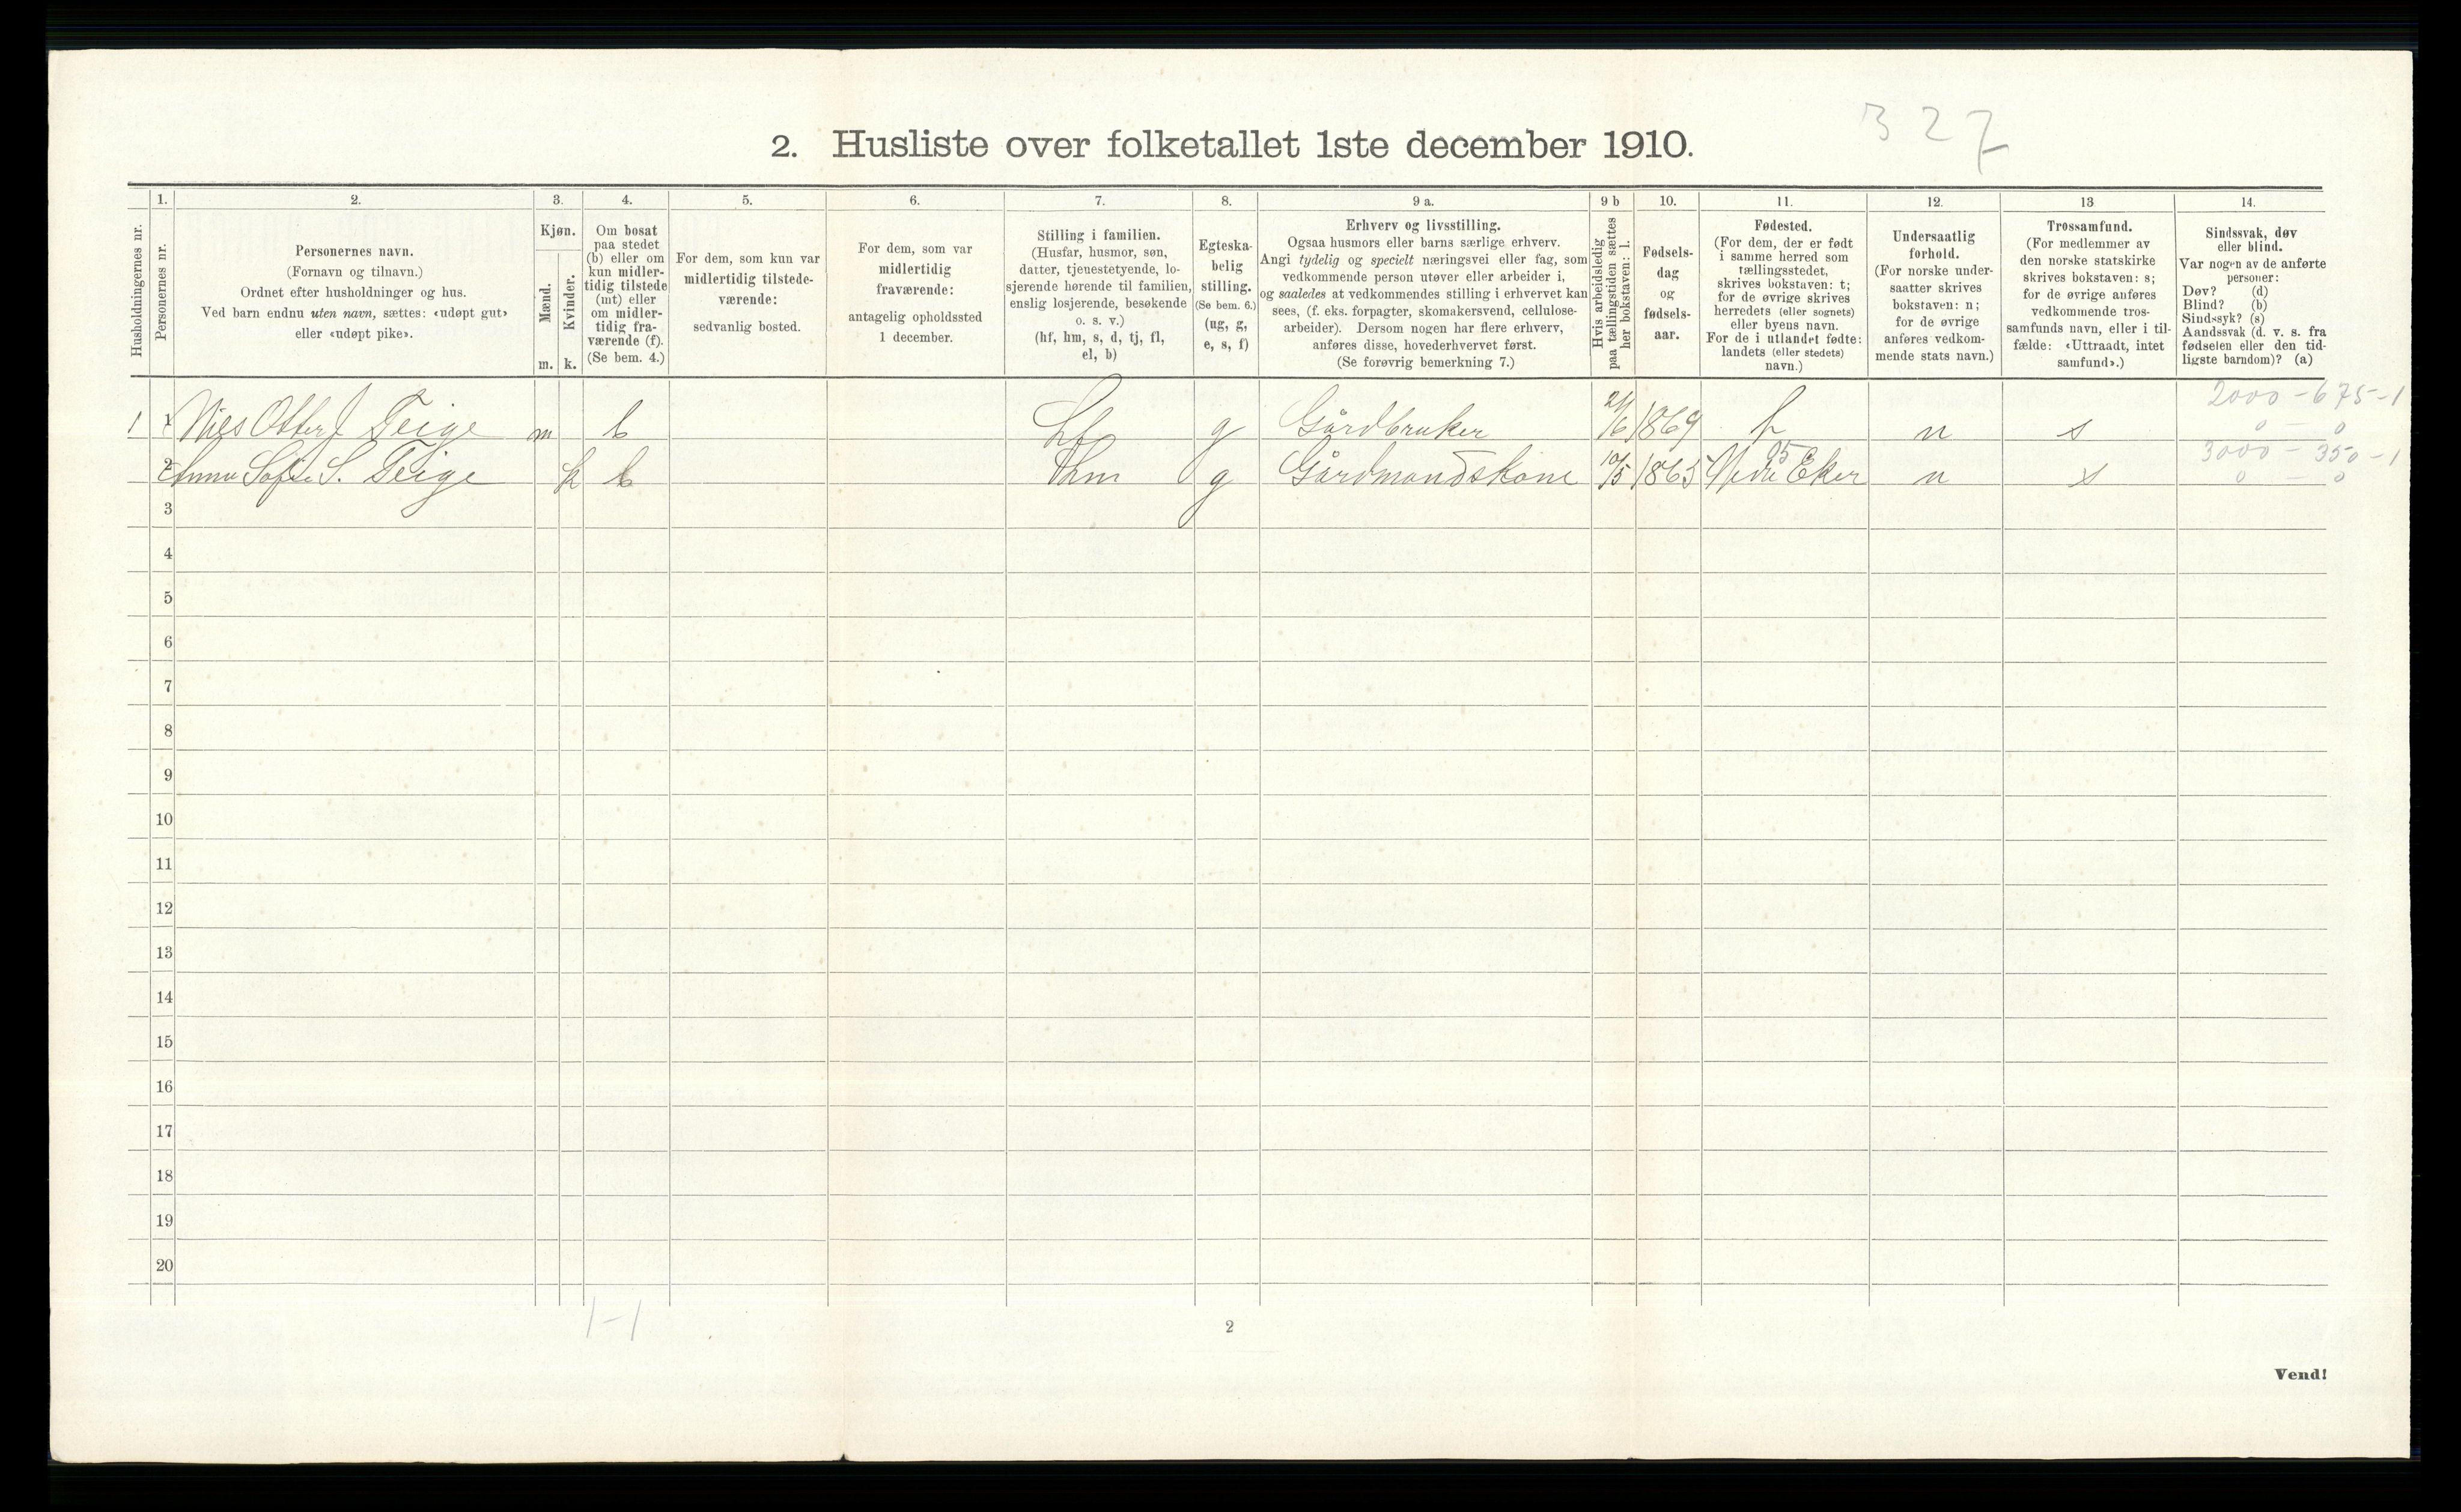 327
2. Husliste over folketallet 1ste december 1910.
Husholdningernes nr.
1. Personernes nr.
2. Personernes navn.
(Fornavn og tilnavn.)
Ordnet efter husholdninger og hus.
Ved barn endnu uten navn, sættes: «udøpt gut»
eller «udøpt pike».
3. Kjøn.
Mænd. m.
Kvinder. k.
4. Om bosat
paa stedet
(b) eller om
kun midler-
tidig tilstede
(mt) eller
om midler-
tidig fra-
værende (f).
(Se bem. 4.)
5. For dem, som kun var
midlertidig tilstede-
værende:
sedvanlig bosted.
6. For dem, som var
midlertidig
fraværende:
antagelig opholdssted
1 december.
7. Stilling i familien.
(Husfar, husmor, søn,
datter, tjenestetyende, lo-
sjerende hørende til familien,
enslig losjerende, besøkende
o. s. v.)
(hf, hm, s, d, tj, fl,
el, b)
8. Egteska-
belig
stilling.
(Se bem. 6.)
(ug, g,
e, s, f)
9 a. Erhverv og livsstilling.
Ogsaa husmors eller barns særlige erhverv.
Angi tydelig og specielt næringsvei eller fag, som
vedkommende person utøver eller arbeider i,
og saaledes at vedkommendes stilling i erhvervet kan
sees, (f. eks. forpagter, skomakersvend, cellulose-
arbeider). Dersom nogen har flere erhverv,
anføres disse, hovederhvervet først.
(Se forøvrig bemerkning 7.)
9 b Hvis arbeidsledig
paa tællingstiden sættes
her bokstaven: l.
10. Fødsels-
dag
og
fødsels-
aar.
11. Fødested.
(For dem, der er født
i samme herred som
tællingsstedet,
skrives bokstaven: t;
for de øvrige skrives
herredets (eller sognets)
eller byens navn.
For de i utlandet fødte:
landets (eller stedets)
navn.)
12. Undersaatlig
forhold.
(For norske under-
saatter skrives
bokstaven: n;
for de øvrige
anføres vedkom-
mende stats navn.)
13 Trossamfund.
(For medlemmer av
den norske statskirke
skrives bokstaven: s;
for de øvrige anføres
vedkommende tros-
samfunds navn, eller i til-
fælde: «Uttraadt, intet
samfund».)
14. Sindssvak, døv
eller blind.
Var nogen av de anførte
personer:
Døv? (d)
Blind? (b)
Sindssyk? (s)
Aandssvak (d. v. s. fra
fødselen eller den tid-
ligste barndom)? (a)
2000 - 675 - 1
1 1 Nils Otter J. Teige m b hf g Gårdbruker 21/6 1869 t n s 0 — 0
3000 - 350 - 1
2 Anna Sofie S. Teige k b hm g Gårdmandskone 10/5 1865 Nedre Eker n s 0 — 0
05
3
4
5
6
7
8
9
10
11
12
13
14
15
16
17
18
19
20
1-1
2
Vend!